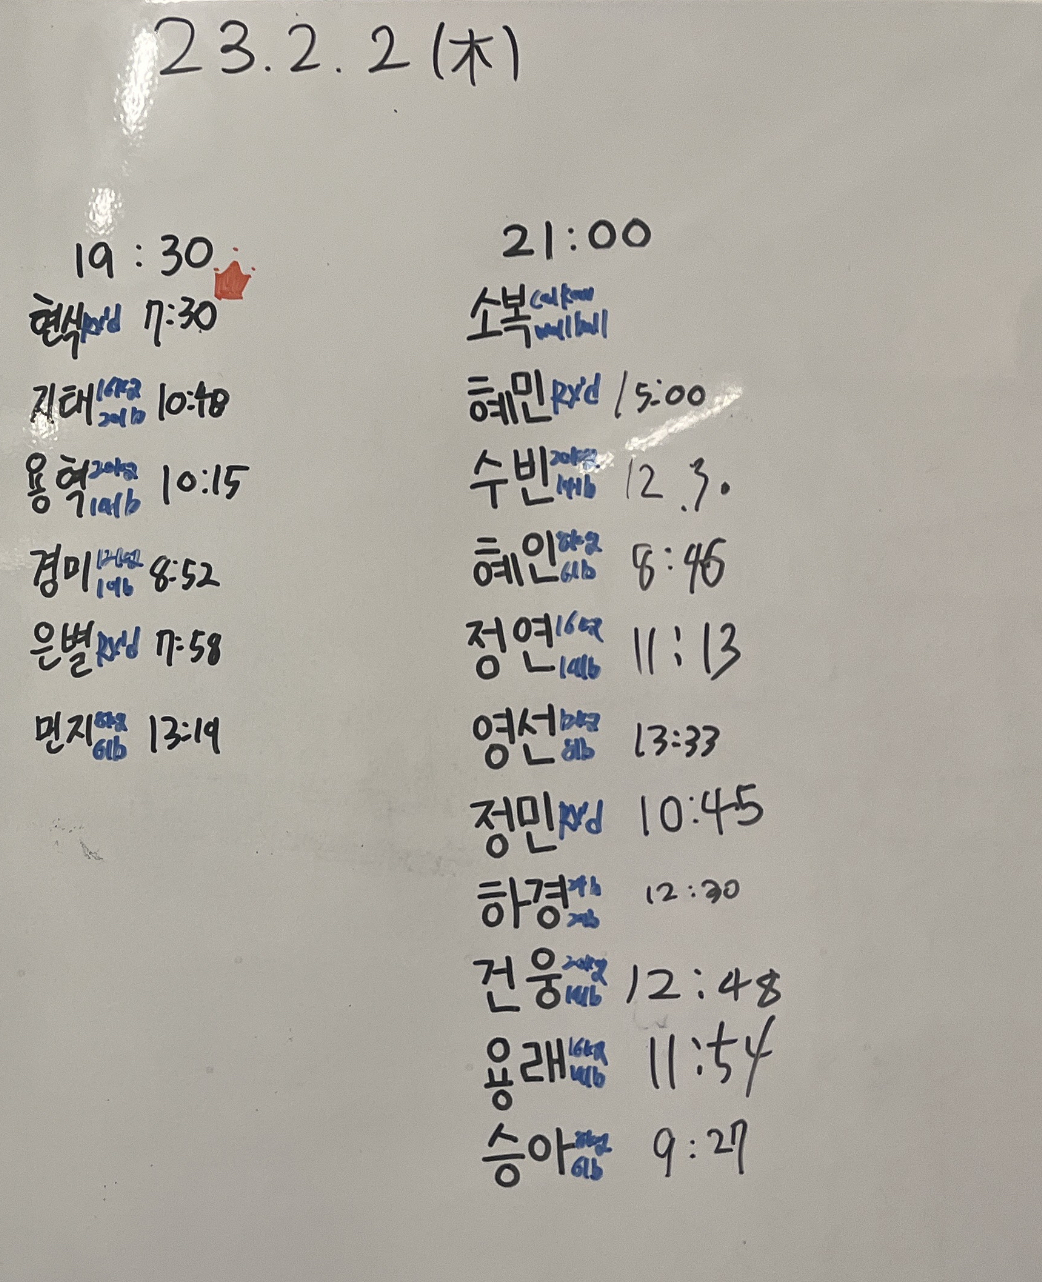 23.2.2(木)
19:30
현식 Rx'd 7:30
지태 16kg 20lb 10:48
용혁 20kg 14lb 10:15
경미 12kg 14lb 8:52
은별 Rx'd 7:58
먼지 8kg 6lb 13:19
21:00
소복 Cal Row wall ball
혜민 Rx'd 15:00
수빈 20kg 14lb 12.3.
혜인 8kg 6lb 8:46
정연 16kg 14lb 11:13
영선 12kg 8lb 13:33
정민 Rx'd 10:45
하경 20lb 12:30
건웅 20kg 14lb 12:48
용래 16kg 14lb 11:54
승아 8kg 6lb 9:27